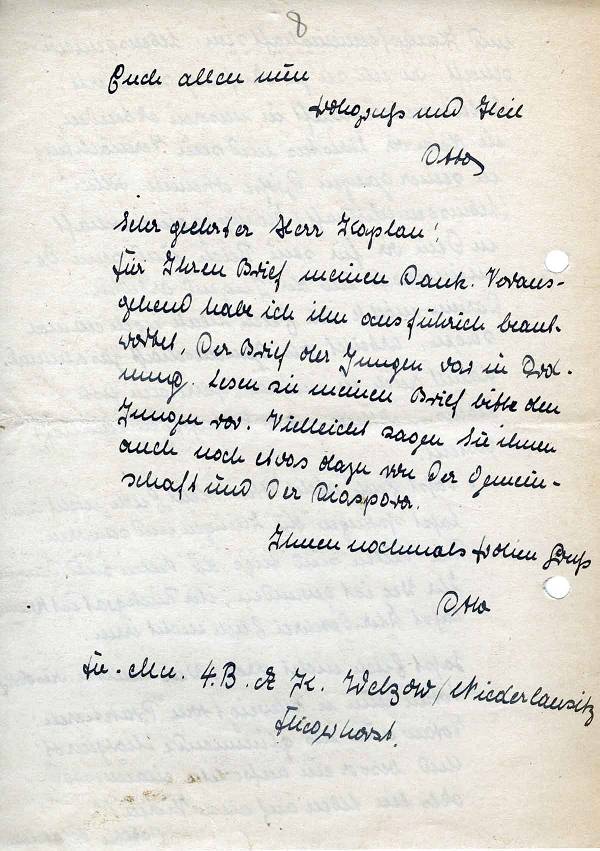 8
Euch allen nun
Frohgruß und Heil
Otto
Sehr geehrter Herr Kaplan!
Für Ihren Brief meinen Dank. Voraus-
gehend habe ich ihn ausführich beant-
wortet. Der Brief der Jungen war in Ord-
nung. Lesen sie meinen Brief bitte den
Jungen vor. Vielleicht sagen Sie ihnen
auch noch etwas dazu von der Gemein-
schaft und der Diaspora.
Ihnen nochmals frohen Gruß
Otto
4. B. A. K. Welzow/Niederlausitz
Fliegerhorst.